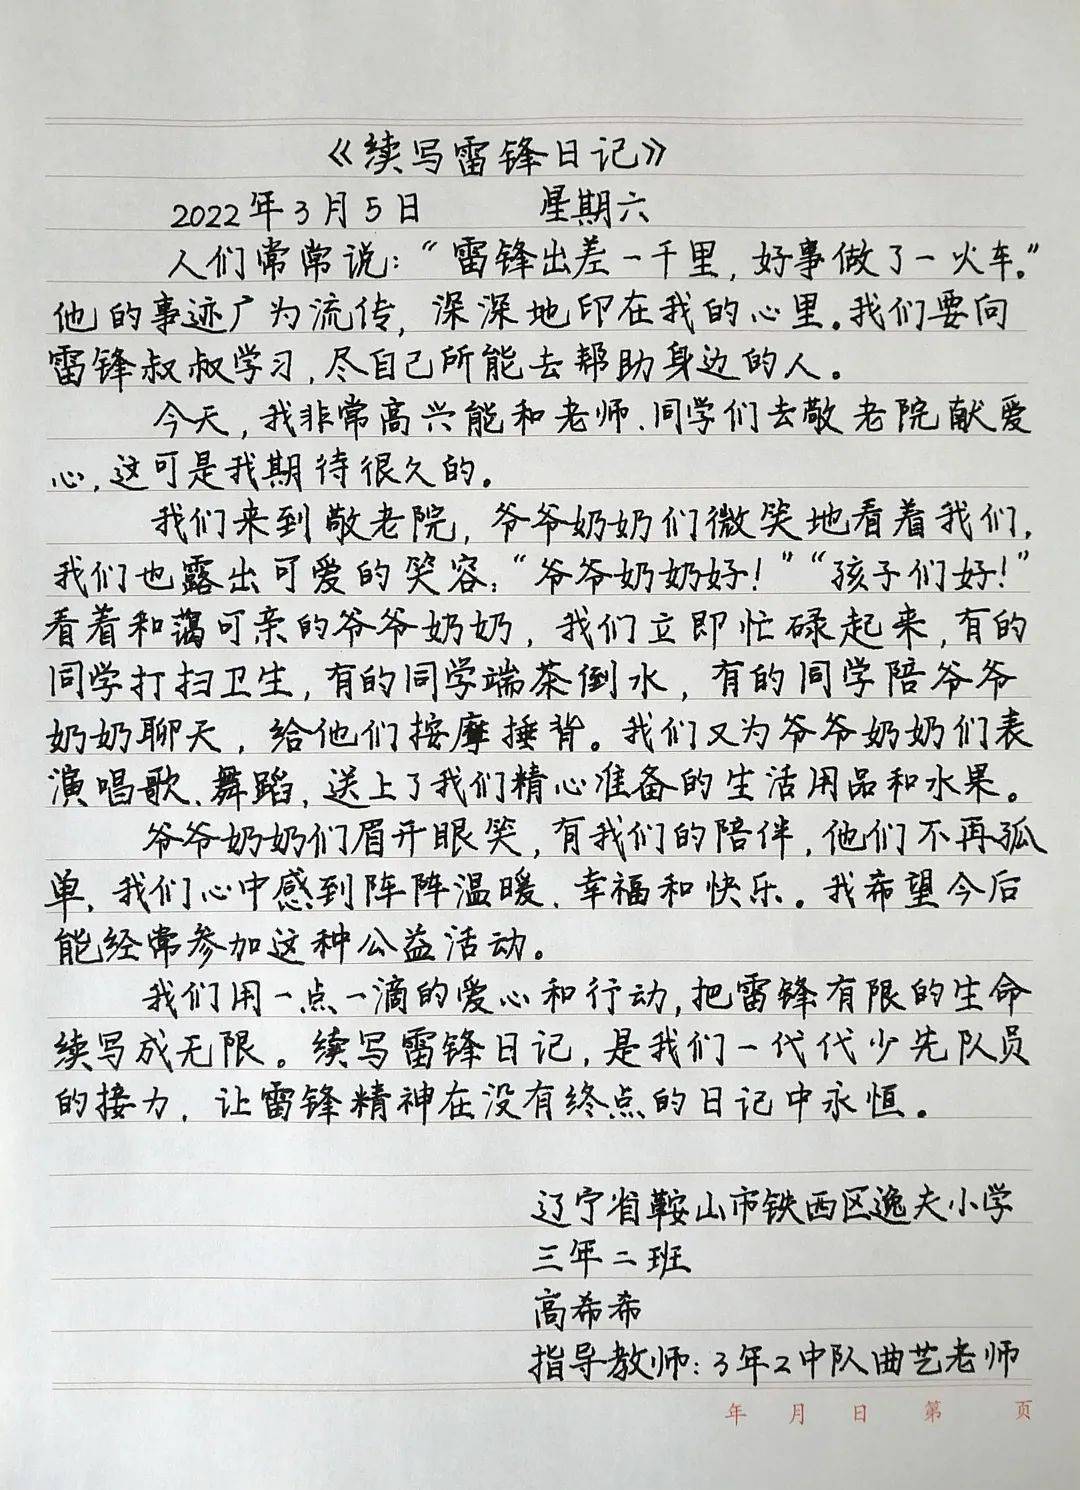 《续写雷锋日记》
2022年3月5日 星期六
人们常常说：“雷锋出差一千里，好事做了一火车。”
他的事迹广为流传，深深地印在我的心里。我们要向
雷锋叔叔学习，尽自己所能去帮助身边的人。
今天，我非常高兴能和老师、同学们去敬老院献爱
心，这可是我期待很久的。
我们来到敬老院，爷爷奶奶们微笑地看着我们，
我们也露出可爱的笑容：“爷爷奶奶好！”“孩子们好！”
看着和蔼可亲的爷爷奶奶，我们立即忙碌起来，有的
同学打扫卫生，有的同学端茶倒水，有的同学陪爷爷
奶奶聊天，给他们按摩捶背。我们又为爷爷奶奶们表
演唱歌、舞蹈，送上了我们精心准备的生活用品和水果。
爷爷奶奶们眉开眼笑，有我们的陪伴，他们不再孤
单，我们心中感到阵阵温暖、幸福和快乐。我希望今后
能经常参加这种公益活动。
我们用一点一滴的爱心和行动，把雷锋有限的生命
续写成无限。续写雷锋日记，是我们一代代少先队员
的接力，让雷锋精神在没有终点的日记中永恒。
辽宁省鞍山市铁西区逸夫小学
三年二班
高希希
指导教师：3年2中队曲艺老师
年 月 日 第 页